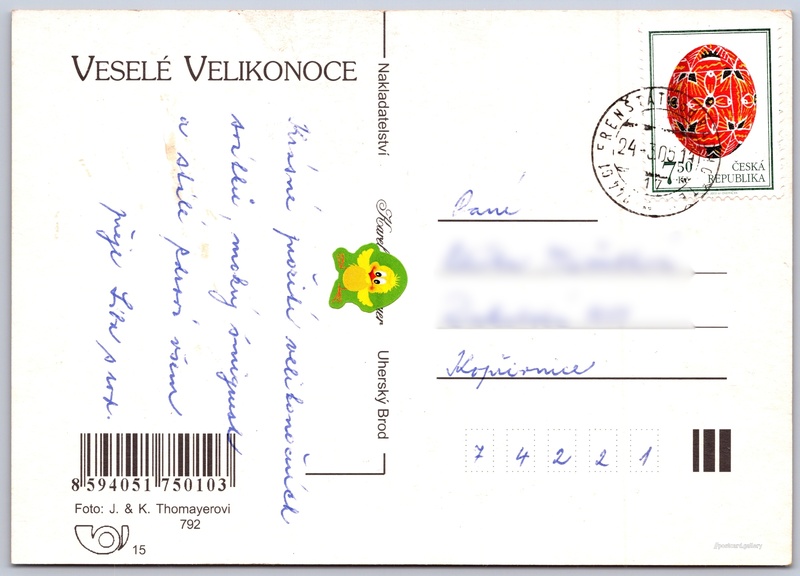 VESELÉ VELIKONOCE
Krásné prožití velikonočních
svátků, mokrý šmigrust
a stálé zdraví všem
přeje Líba s rod.
Nakladatelství
Karel
Uherský Brod
8 594051 750103
Foto: J. & K. Thomayerovi
792
15
FRENŠTÁT
744 01
24.-3.05.
7,50
Kč
ČESKÁ
REPUBLIKA
Paní
Kopřivnice
7 4 2 2 1
postcard.gallery